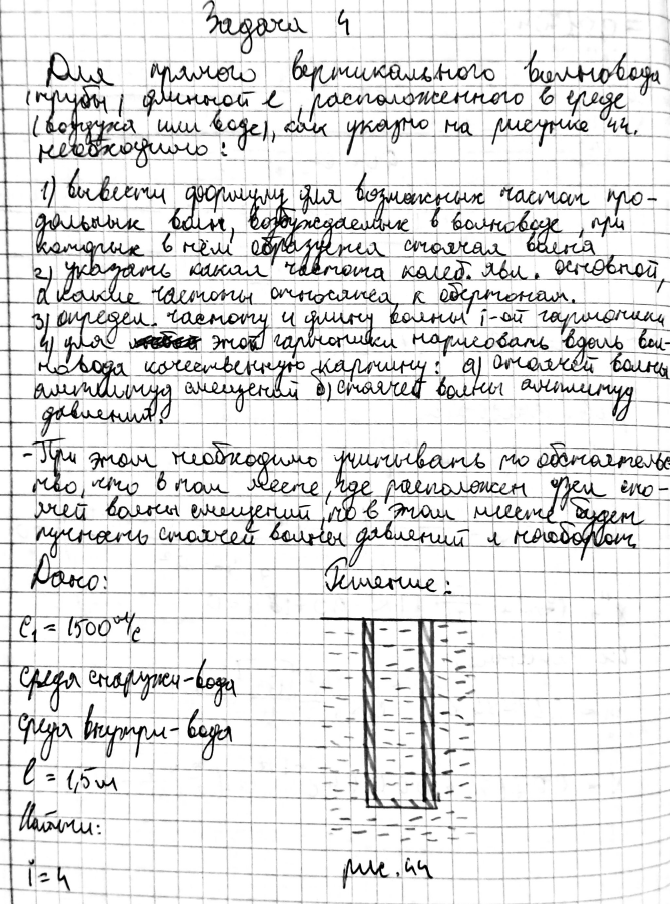 Задача 4
Для прямого вертикального волновода
(трубы) длинной l, расположенного в среде
(воздуха или воде), как указно на рисунке 44.
необходимо:
1) вывести формулу для возможных частот про-
дольных волн, возбуждаемых в волноводе, при
которых в нём образуется стоячая волна
2) указать какая частота колеб. явл. основной,
а какие частоты относятся к обертонам.
3) определ. частоту и длину волны i-ой гармоники
4) для этой гармоники нарисовать вдоль вол-
новода качественную картину: а) стоячей волны
амплитуд смещений б) стоячей волны амплитуд
давлений.
- При этом необходимо учитывать то обстоятельс
тво, что в том месте, где расположен узел сто-
ячей волны смещений, то в этом месте будет
пучность стоячей волны давлений и наоборот
Дано: Решение:
C₁ = 1500 м/с
среда снаружи-вода
среда внутри-вода
l = 1,5 м
Найти:
i = 4 рис. 44